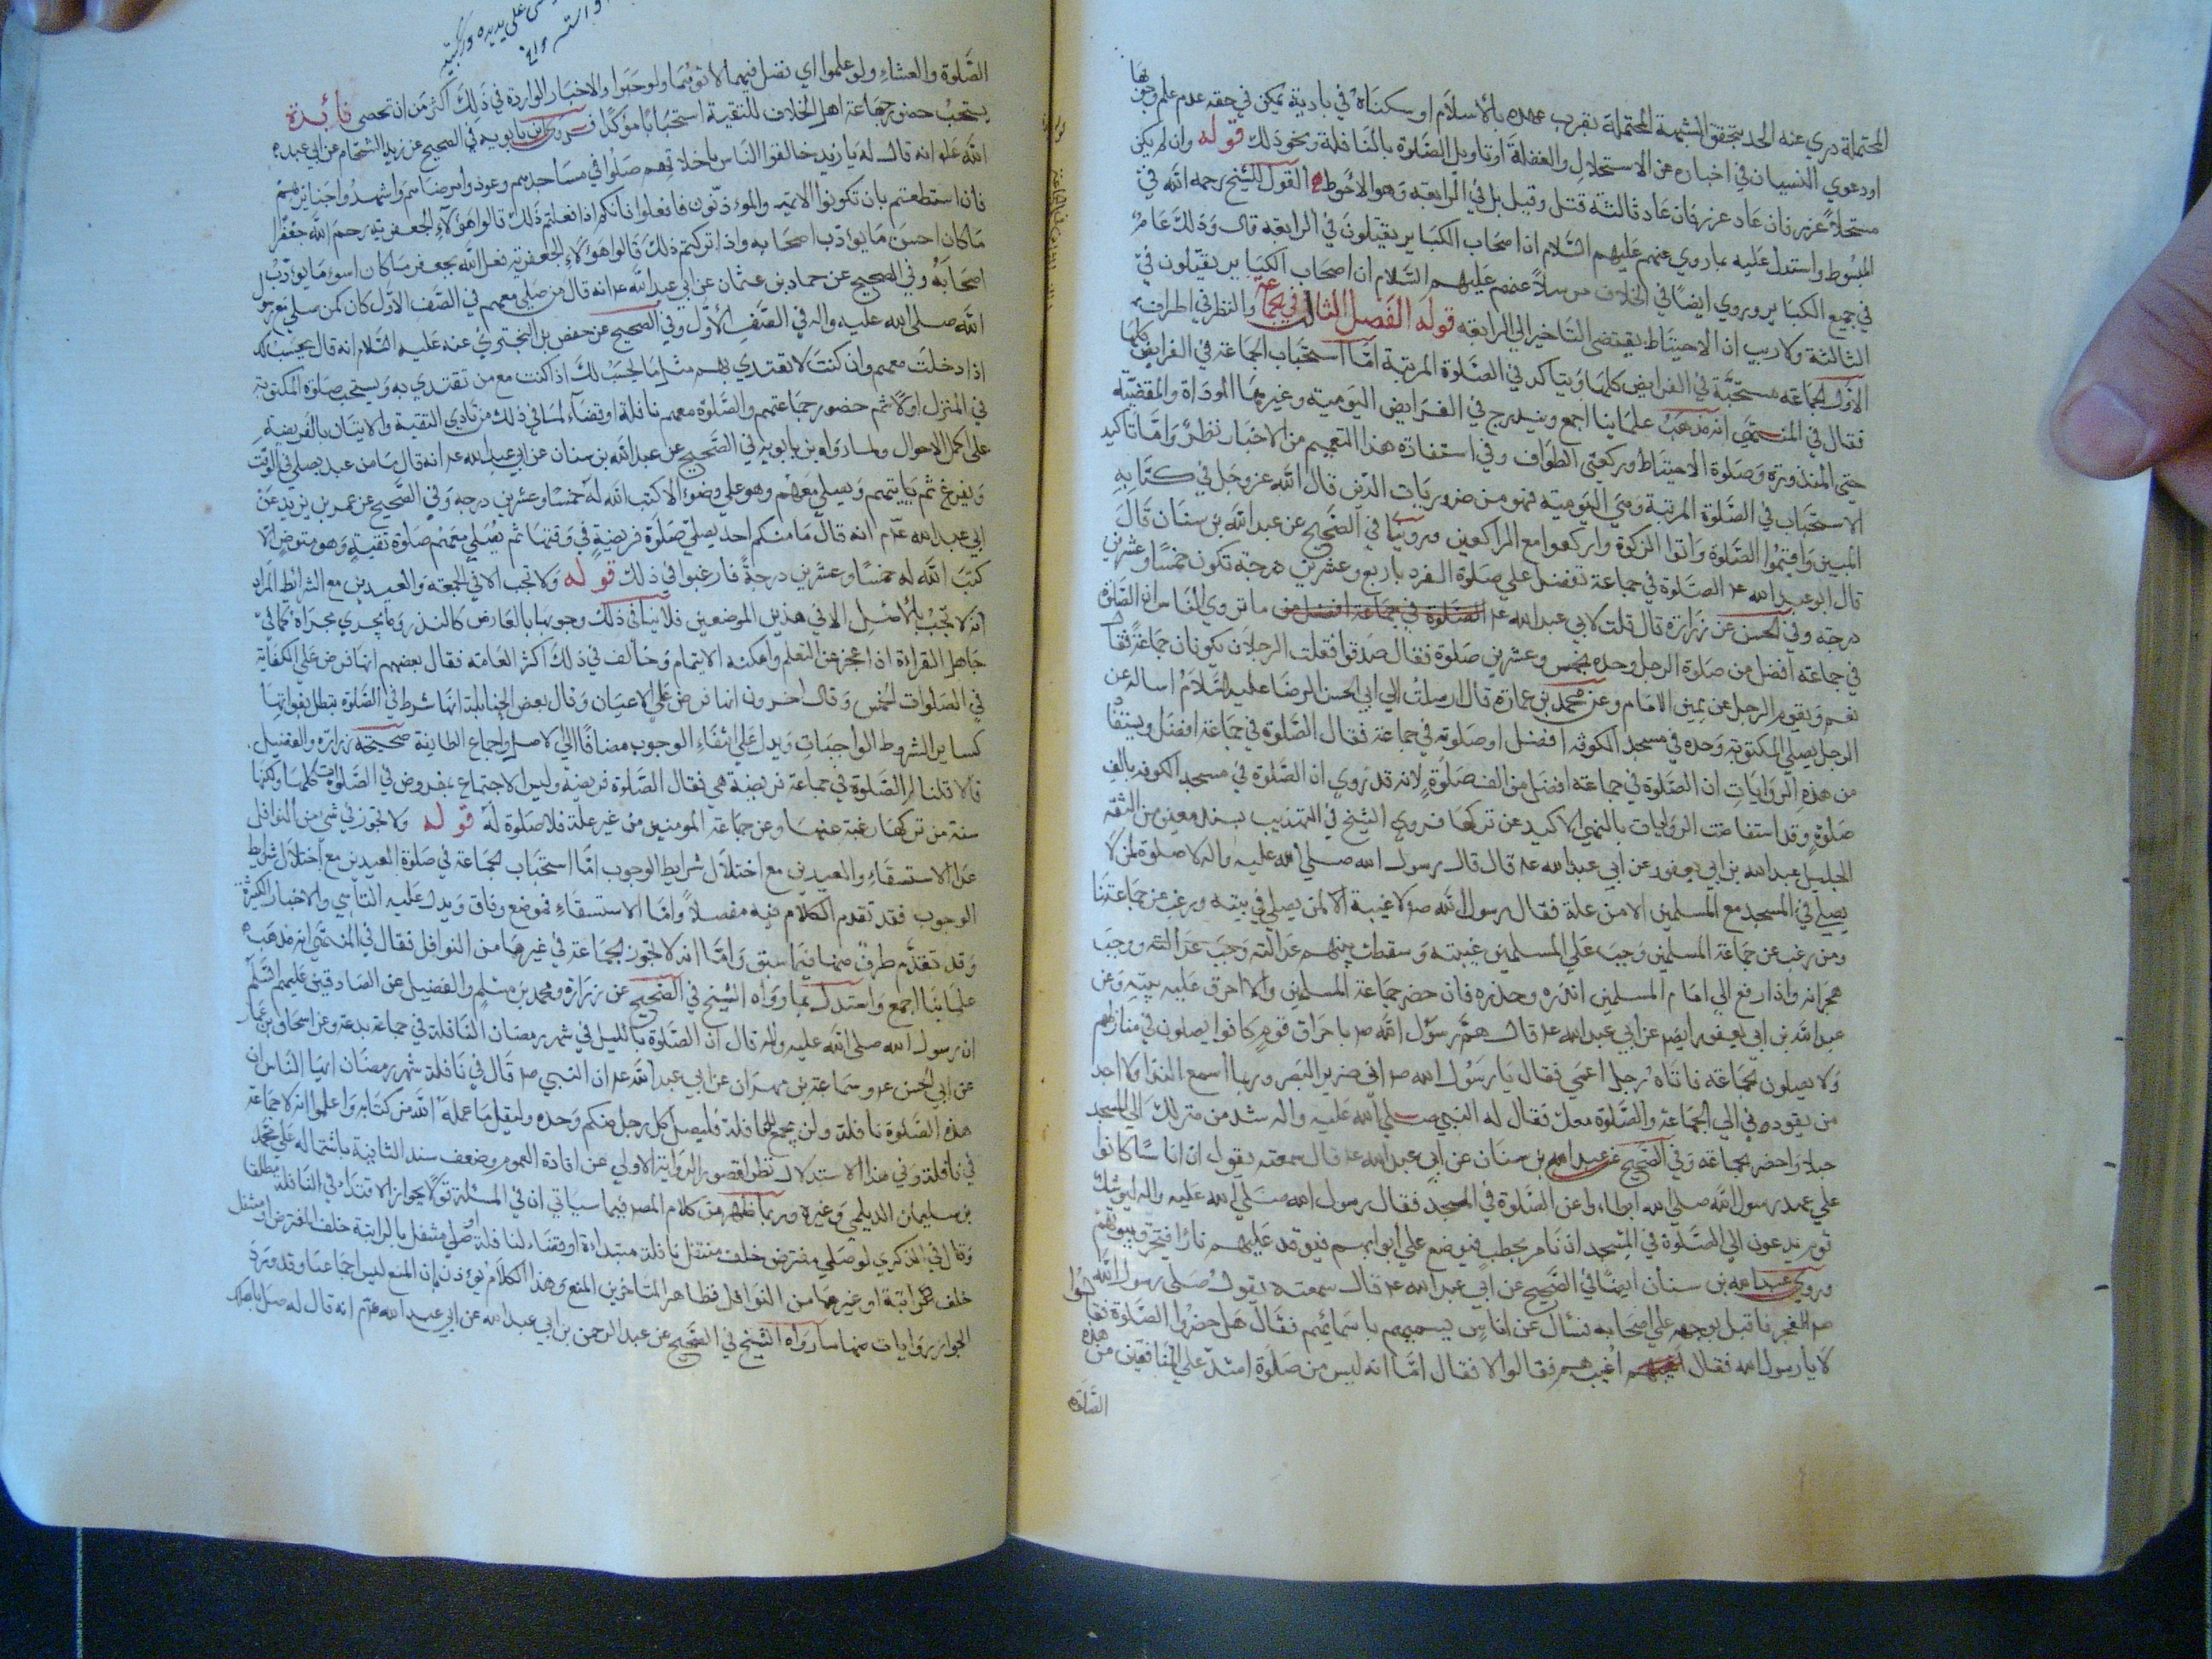 المحتملة دري عنه الحد بتحقق الشبهة المحتملة بقرب عهده بالاسلام او سكناه في بادية يمكن في حقه عدم علم وجوبها
او دعوي النسيان في اخباره عن الاستحلال والغفلة او تاويل الصلوة بالنافلة ونحو ذلك قوله وان لم يكن
مستحلا عزر فان عاد عزر فان عاد ثالثة قتل وقيل بل في الرابعة وهو الاحوط القول للشيخ رحمه الله في
المبسوط واستدل عليه بما روي عنهم عليهم السلام ان اصحاب الكباير يقتلون في الرابعه قال وذلك عام
في جميع الكباير وروي ايضا في الخلاف مرسلا عنهم عليهم السلام ان اصحاب الكباير يقتلون في
الثالثة ولا ريب ان الاحتياط يقتضي التاخير الي الرابعه قوله الفصل الثالث في الجماعة والنظر في اطراف
الاول الجماعة مستحبة في الفرايض كلها ويتاكد في الصلوة المرتبة اما استحباب الجماعة في الفرايض كلها
فقال في المنتهي انه مذهب علماينا اجمع ويندرج في الفرايض اليومية وغيرها المودّاة والمقضيّه
حتي المنذورة وصلوة الاحتياط وركعتي الطواف وفي استفادة هذا التعميم من الاخبار نظر واما تاكيد
الاستحباب في الصلوة المرتبة وهي اليومية فهو من ضروريات الدين قال الله عز وجل في كتابه
المبين واقيموا الصلوة واتوا الزكوة واركعوا مع الراكعين وروينا في الصحيح عن عبد الله بن سنان قال
قال ابو عبد الله ع الصلوة في جماعة تفضل علي صلوة الفرد باربع وعشرين درجة تكون خمسا وعشرين
درجة وفي الحسن عن زرارة قال قلت لابي عبد الله ع ما تروي الناس ان الصلوة
في جماعة افضل من صلوة الرجل وحده بخمس وعشرين صلوة فقال صدقوا فقلت الرجلان يكونان جماعة فقال
نعم ويقوم الرجل عن يمين الامام وعن محمد بن عمارة قال ارسلت الي ابي الحسن الرضا عليه السلام اساله عن
الرجل يصلي المكتوبة وحده في مسجد الكوفه افضل او صلوته في جماعة فقال الصلوة في جماعة افضل ويستفاد
من هذه الروايات ان الصلوة في جماعة افضل من الف صلوة لانه قد روي ان الصلوة في مسجد الكوفه بالف
صلوة وقد استفاضت الروايات بالنهي الاكيد عن تركها فروي الشيخ في التهذيب بسند معتبر من الثقه
الجليل عبد الله بن ابي يعفور عن ابي عبد الله ع قال قال رسول الله صلي الله عليه واله لا صلوة لمن لا
يصلي في المسجد مع المسلمين الا من علة فقال رسول الله ص لا غيبة الا لمن يصلي في بيته ورغب عن جماعتنا
ومن رغب عن جماعة المسلمين وجب علي المسلمين غيبته وسقطت بينهم عدالته ووجب
هجرانه واذا رفع الي امام المسلمين انذره وحذره فان حضر جماعة المسلمين والا احرق عليه بيته وعن
عبد الله بن ابي يعفور ايضا عن ابي عبد الله ع قال هم رسول الله ص باحراق قوم كانوا يصلون في منازلهم
ولا يصلون الجماعة فاتاه رجل اعمي فقال يا رسول الله ص اني ضرير البصر وربما اسمع الندا ولا اجد
من يقودني الي الجماعة والصلوة معك فقال له النبي صلي الله عليه واله شد من منزلك الي المسجد
حبلا واحضر الجماعة وفي الصحيح عن عبد الله بن سنان عن ابي عبد الله ع قال سمعته يقول ان اناسا كانوا
علي عهد رسول الله صلي الله ابطاءوا عن الصلوة في المسجد فقال رسول الله صلي الله عليه واله ليوشك
قوم يدعون الي الصلوة في المسجد ان نامر بحطب فيوضع علي ابوابهم فيوقد عليهم نارا فتحرق بيوتهم
وروي عبد الله بن سنان ايضا في الصحيح عن ابي عبد الله ع قال سمعته يقول صلي رسول الله
ص الفجر فاقبل بوجهه علي اصحابه فسأل عن اناس يسميهم باسمائهم فقال هل حضروا الصلوة فقالوا
لا يا رسول الله فقال اغيب هم فقالوا لا فقال اما انه ليس من صلوة اشد علي المنافقين من هذه
الصلوة
الصلوة والعشاء ولو علموا اي فضل فيهما لاتوهما ولو حبوا والاخبار الواردة في ذلك اكثر من ان تحصى فائدة
يستحب حضور جماعة اهل الخلاف للتقية استحبابا مؤكدا فروي ابن بابويه في الصحيح عن زيد الشحام عن ابي عبد
الله ع انه قال له يا زيد خالقوا الناس باخلاقهم صلوا في مساجدهم وعودوا مرضاهم واشهدوا جنايزهم
فان استطعتم بان تكونوا الائمه والمؤذنون فافعلوا فانكم اذا فعلتم ذلك قالوا هؤلاء الجعفريه رحم الله جعفرا
ما كان احسن ما يؤدب اصحابه واذا تركتم ذلك قالوا هؤلاء الجعفريه فعل الله بجعفر ما كان اسوء ما يؤدب
اصحابه وفي الصحيح عن حماد بن عثمان عن ابي عبد الله ع انه قال من صلي معهم في الصف الاول كان كمن صلي مع رسول
الله صلي الله عليه واله في الصف الاول وفي الصحيح عن حفص بن البختري عنه عليه السلام انه قال يحسب لك
اذا دخلت معهم وان كنت لا تقتدي بهم مثل ما يحسب لك اذا كنت مع من تقتدي به ويستحب صلوة المكتوبة
في المنزل اولا ثم حضور جماعتهم والصلوة معهم نافلة او قضاء لما في ذلك من تادي التقية والاتيان بالفريضة
علي اكمل الاحوال ولما رواه بن بابويه في الصحيح عن عبد الله بن سنان عن ابي عبد الله ع انه قال ما من عبد يصلي في الوقت
ويفرغ ثم ياتيهم ويصلي معهم وهو علي وضوء الا كتب الله له خمسا وعشرين درجة وفي الصحيح عن عمر بن يزيد عن
ابي عبد الله ع انه قال ما منكم احد يصلي صلوة فريضة في وقتها ثم يصلي معهم صلوة تقية وهو متوض الا
كتب الله له خمسا وعشرين درجة فارغبوا في ذلك قوله ولا تجب الا في الجمعة والعيدين مع الشرايط المراد
انه لا تجب بالاصل الا في هذين الموضعين فلا ينافي ذلك وجوبها بالعارض كالنذر وما يجري مجراه كما في
جاهل القراءة اذا عجز عن التعلم وامكنه الايتمام وخالف في ذلك اكثر العامة فقال بعضهم انها فرض علي الكفاية
في الصلوات الخمس وقال اخرون انها فرض علي الاعيان وقال بعض الحنابلة انها شرط في الصلوة تبطل بفواتها
كساير الشروط الواجبات ويدل علي انتفاء الوجوب مضافا الي الاصل واجماع الطايفة صحيحة زرارة والفضيل
قالا قلنا له الصلوة في جماعة فريضة هي فقال الصلوة فريضة وليس الاجتماع بمفروض في الصلوات كلها ولكنها
سنة من تركها رغبة عنها وعن جماعة المومنين من غير علة فلا صلوة له قوله ولا تجوز في شي من النوافل
عدا الاستسقاء والعيدين مع اختلال شرايط الوجوب اما استحباب الجماعة في صلوة العيدين مع اختلال شرايط
الوجوب فقد تقدم الكلام فيه مفصلا واما الاستسقاء فموضع وفاق ويدل عليه التاسي والاخبار الكثيرة
وقد تقدم طرف منها فيما سبق واما انه لا تجوز الجماعة في غيرها من النوافل فقال في المنتهي انه مذهب
علماينا اجمع واستدل بما رواه الشيخ في الصحيح عن زرارة ومحمد بن مسلم والفضيل عن الصادقين عليهم السلم
ان رسول الله صلي الله عليه واله قال ان الصلوة بالليل في شهر رمضان النافلة في جماعة بدعة وعن اسحاق بن عمار
عن ابي الحسن ع وسماعة بن مهران عن ابي عبد الله ع ان النبي ص قال في نافلة شهر رمضان ايها الناس ان
هذه الصلوة نافلة ولن يجمع للنافلة فليصل كل رجل منكم وحده وليقل ما علمه الله من كتابه واعلموا انه لا جماعة
في نافلة وفي هذا الاستدلال نظر لقصور الرواية الاولي عن افادة العموم وضعف سند الثانية باشتماله علي محمد
بن سليمان الديلمي وغيره وربما ظهر من كلام المصر فيما سياتي ان في المسئلة قولا بجواز الاقتداء في النافلة مطلقا
وقال في الذكري لو صلي مفترض خلف متنفل نافلة مبتداءة او قضاء لنافلة او صلي متنفل بالراتبة خلف المفترض او متنفل
خلف راتبة او غيرها من النوافل فظاهر المتاخرين المنع وهذا الكلام يؤذن بان المنع ليس اجماعيا وقد ورد
الجواز روايات منها ما رواه الشيخ في الصحيح عن عبد الرحمن بن ابي عبد الله عن ابي عبد الله ع انه قال له صل باهلك